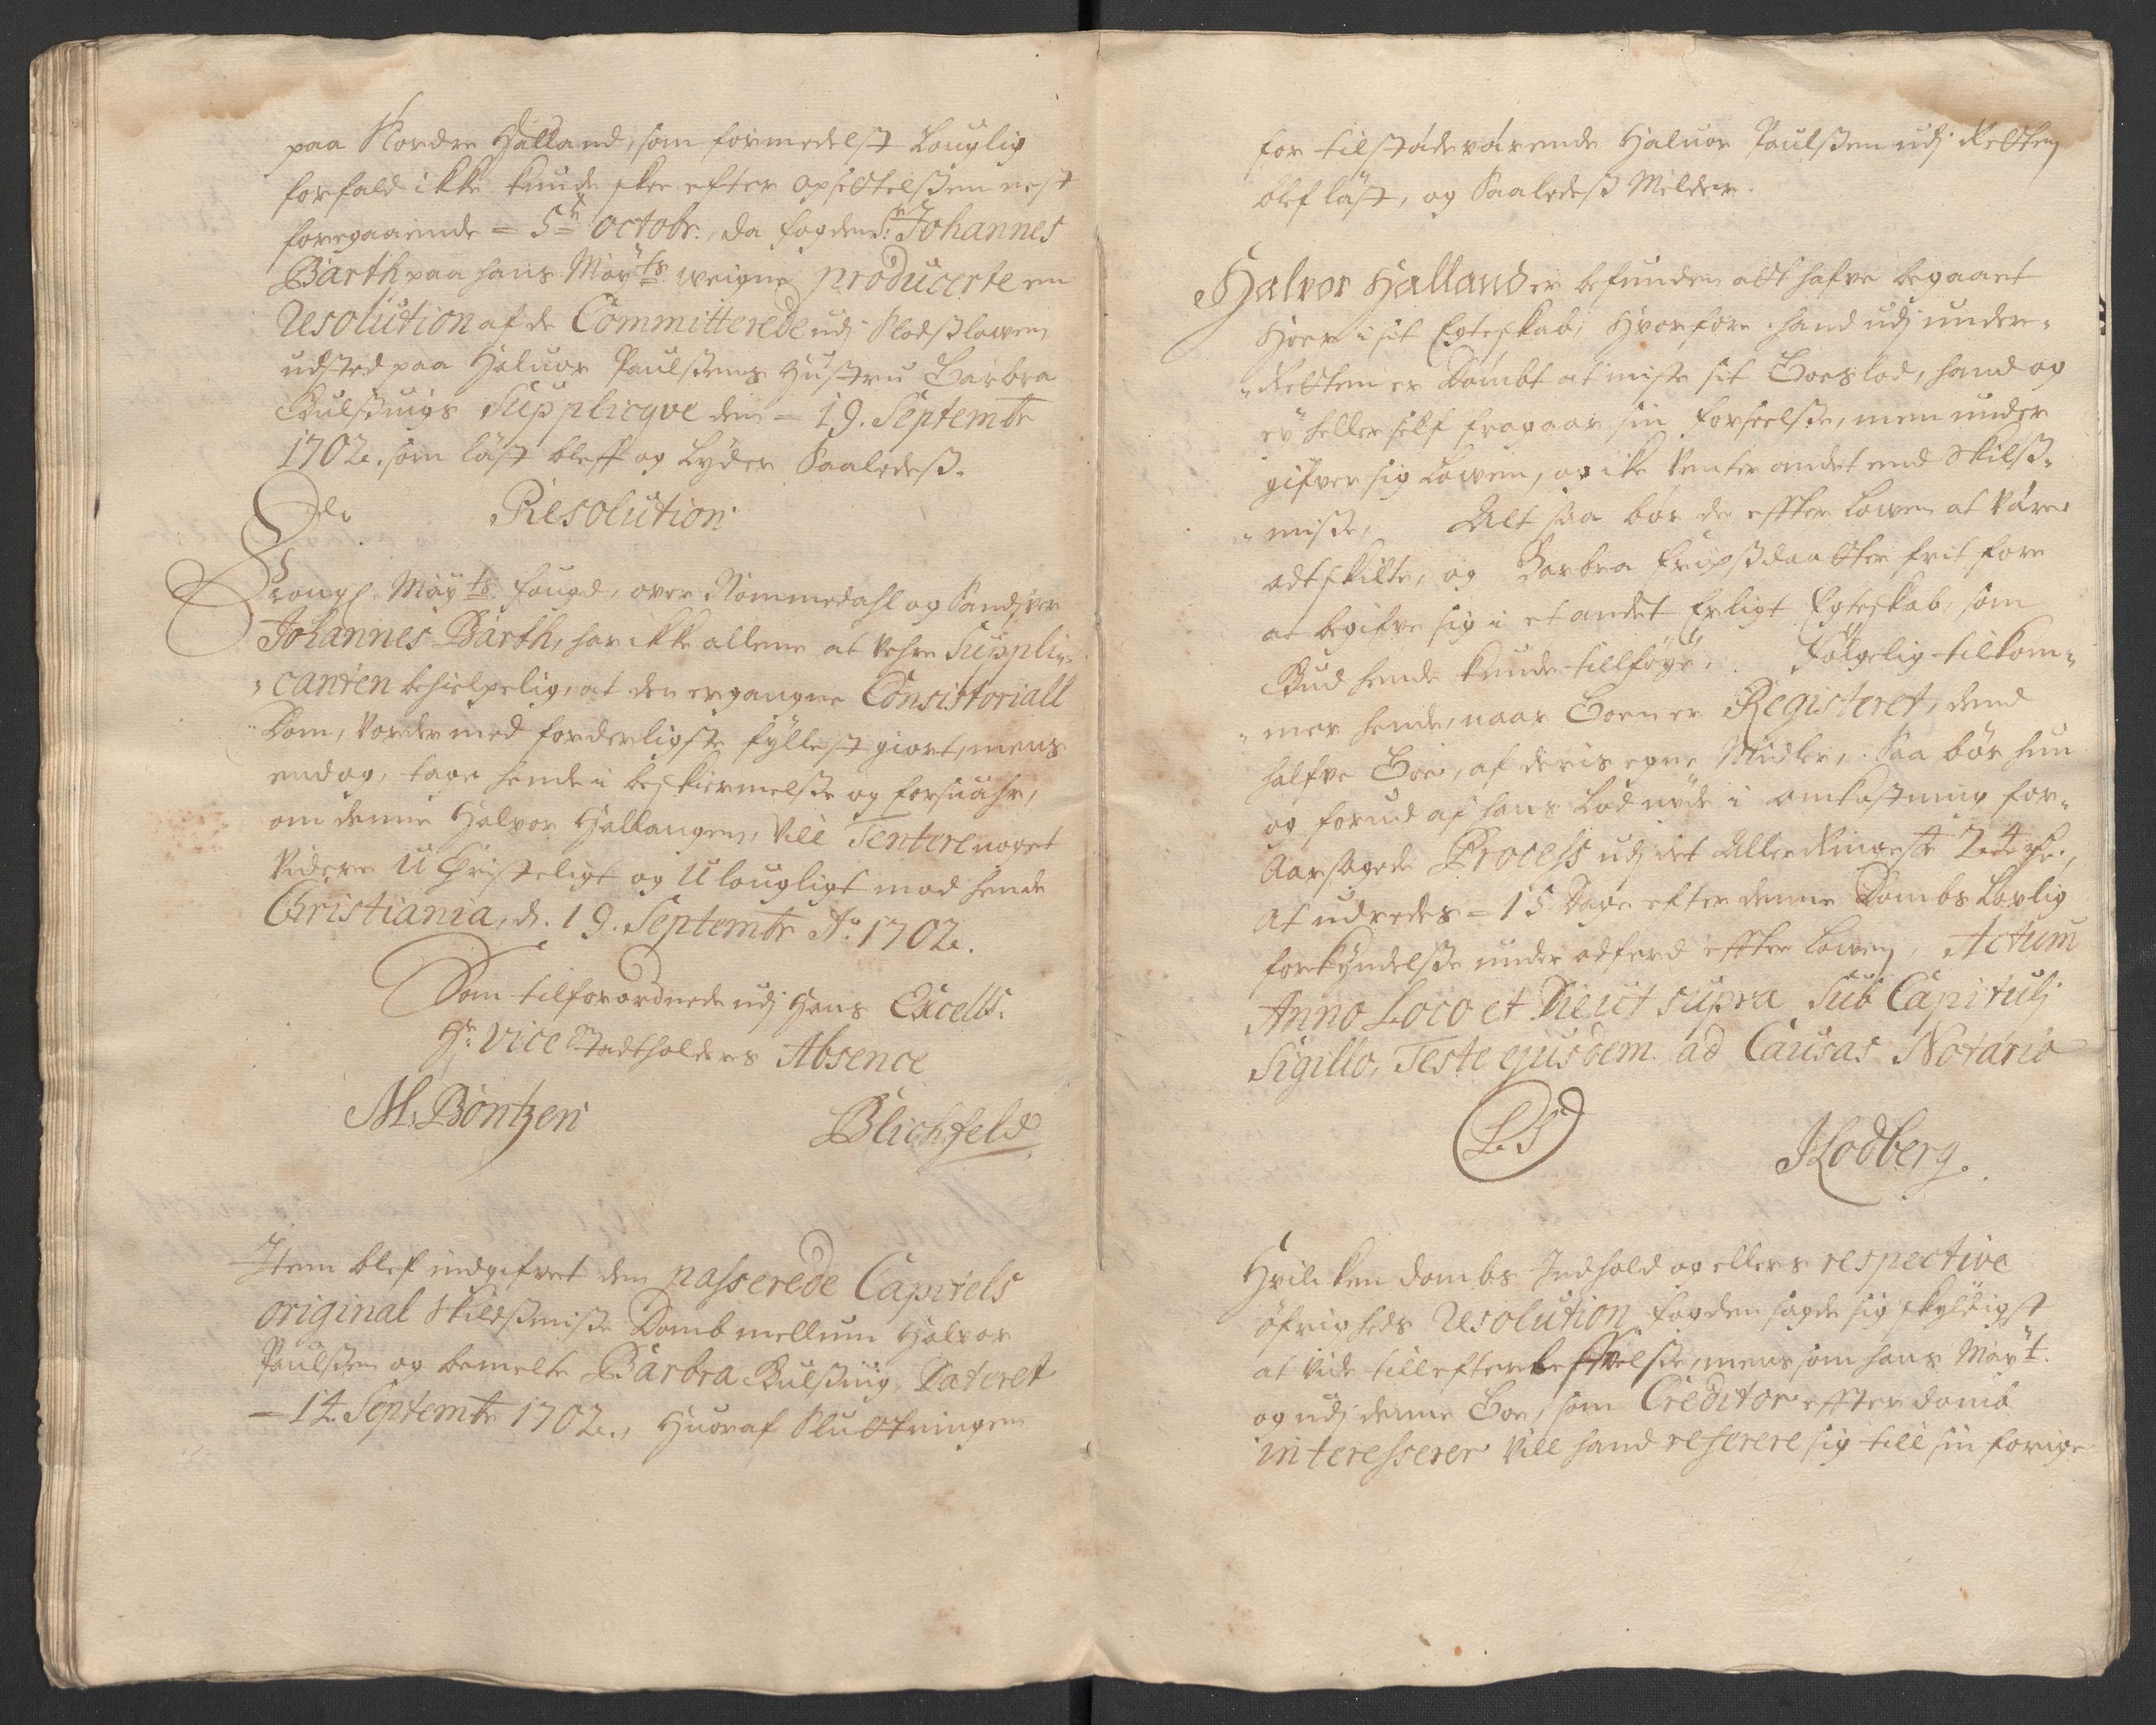 paa Nordre Halland, som formedelst Louglig
forfald ikke kunde skee efter opsettelsen nest
foregaaende = 5te octobr., da fogden Sr: Johannes
Barth paa hans Mayts weigne producerte en
Resolution af de Committerede udj Slodsslowen
udsted paa Haluor Poulssens Hustru Barbra
Kulssings Supplicqve den = 19. Septembr
1702. som läst bleff og Lyder Saaledess.
Resolution
Kongl. Mayts. fougd, over Nommedahl og Sandsver
Johannes Barth, har ikke allene at wehre Suppli-
canten behielpelig, at den ergangne Consistoriall
Dom, vorder med forderligste fyllest giort, mens
endog, tage hende i beskiermelsse og forsuahr,
om denne Halvor Hallangen, Vill Tentere noget
Videre U Christeligt og Ulougligt mod hende
Christiania, d. 19. Septembr Ao. 1702.
Som tilforordnede udj Hans Excells.
Hr. Vice Stadtholders Absence
M. Böntzen Blichfeld
Item blef indgifvet den passerede Capitels
original Skildssmisse Domb mellum Halvor
Poulssen og bemelte Barbra Kulssing, Dateret
= 14. Septembr 1702., Huoraf Sluttningen
for tilstädevärende Haluor Poulssen udj Retten
blef läst, og Saaledess Melder.
Halvor Halland er befunden att hafve begaaet
Hoer i sit Egteskab, Hvorfore hand udj under-
Retten er Dömbt at miste sit Boeslod, hand og
ey heller self fragaar sin forseelsse, men under
gifver sig Lowen, og ikke venter andet end Skilss-
misse, Alt saa bör de effter Lowen at Väre
adtskilte, og Barbra frit fore
at begifve sig i et andet Erligt Egteskab, som
Gud hende kunde tillföye. Fölgelig tilkom-
mer hende, naar Boen er Registeret, dend
halfve Boe, af deris egne Midler, Saa bör hun
og forud af hans Lod nyde i omkostning for-
Aarsagede Process udj det Allerringeste 24 rdr.,
At udredes = 15 Dage efter denne Dombs Lovlig
forkyndelsse under adferd effter Lowen, Actum
Anno Loco et Die ut supra Sub Capitulj
Sigillo, Teste ejusdem ad Causas Notario
L.S JLodberg.
Hvilcken dombs Indhold og ellers respective
öfrigheds Resolution fogden sagde sig skyldigst
at vide till efterlefwelsse, mens som hans Mayt.
og udj denne Boe, som Creditor effter domb
interesserer vill hand referere sig till sin forige